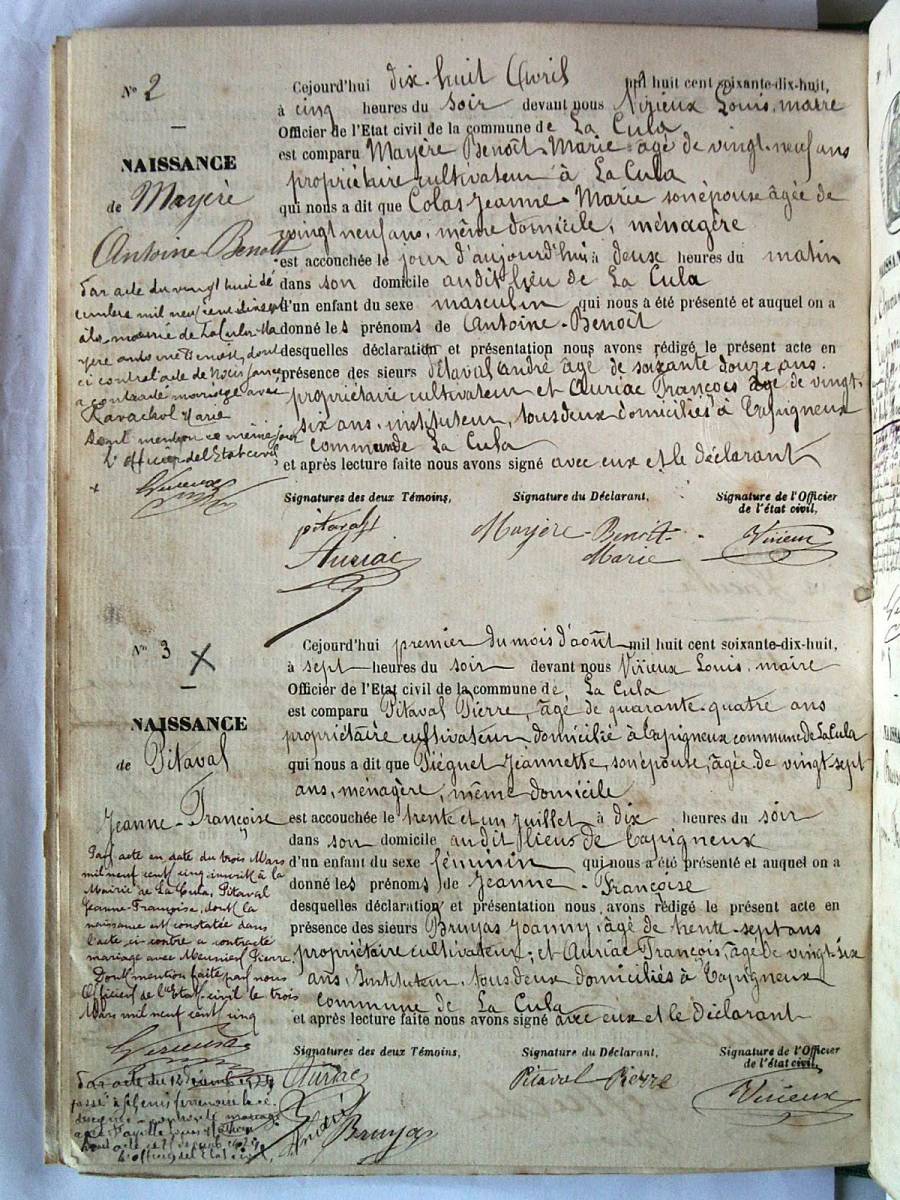 Nº 2
NAISSANCE
de Mayère
Antoine-Benoît
Par acte du vingt huit dé
cembre mil neuf cent
mairie de La Cula Ma
yère Antoine Benoit, dont
ci contre l'acte de naissance
a contracté mariage avec
Ravachol Marie
Dont mention ce même jour
L'officier de l'Etat civil
Virieux
Cejourd'hui dix-huit Avril mil huit cent soixante-dix-huit,
à cinq heures du soir devant nous Virieux Louis, maire
Officier de l'Etat civil de la commune de La Cula
est comparu Mayère Benoît-Marie âgé de vingt-neuf ans
propriétaire cultivateur à La Cula
qui nous a dit que Colas Jeanne-Marie son épouse âgée de
vingt neuf ans, même domicile, ménagère
est accouchée le jour d'aujourd'hui à deux heures du matin
dans son domicile audit lieu de La Cula
d'un enfant du sexe masculin qui nous a été présenté et auquel on a
donné les prénoms de Antoine-Benoît
desquelles déclaration et présentation nous avons rédigé le présent acte en
présence des sieurs Pitaval André âgé de soixante douze ans.
propriétaire cultivateur et Auriac François âgé de vingt-
six ans, instituteur, tous deux domiciliés à Tapigneux
commune de La Cula
et après lecture faite nous avons signé avec eux et le déclarant
Signatures des deux Témoins, Signature du Déclarant, Signature de l'Officier
de l'état civil,
pitaval Mayère-Benoît- Virieux
Auriac Marie
Nº 3 X
NAISSANCE
de Pitaval
Jeanne-Françoise
Par acte en date du trois Mars
mil neuf cent cinq inscrit à la
Mairie de La Cula, Pitaval
Jeanne-Françoise, dont la
naissance est constatée dans
l'acte ci-contre a contracté
mariage avec Meunier Pierre.
Dont mention faite par nous
Officier de l'Etat-civil le trois
Mars mil neuf cent cinq
Virieux
Par acte du 12
passé à
mariage
avec
L'officier de l'Etat civil,
Cejourd'hui premier du mois d'août mil huit cent soixante-dix-huit,
à sept heures du soir devant nous Virieux Louis, maire
Officier de l'Etat civil de la commune de La Cula
est comparu Pitaval Pierre, âgé de quarante-quatre ans
propriétaire cultivateur domicilié à Tapigneux commune de La Cula
qui nous a dit que Piéguet Jeannette, son épouse, âgée de vingt-sept
ans, ménagère, même domicile
est accouchée le trente et un Juillet à dix heures du soir
dans son domicile audit lieu de Tapigneux
d'un enfant du sexe féminin qui nous a été présenté et auquel on a
donné les prénoms de Jeanne-Françoise
desquelles déclaration et présentation nous avons rédigé le présent acte en
présence des sieurs Bruyas Joanny, âgé de trente-sept ans
propriétaire cultivateur; et Auriac François, âgé de vingt-six
ans, Instituteur, tous deux domiciliés à Tapigneux
commune de La Cula
et après lecture faite nous avons signé avec eux et le déclarant
Signatures des deux Témoins, Signature du Déclarant, Signature de l'Officier
de l'état civil,
Auriac Pitaval Pierre Virieux
Bruyas